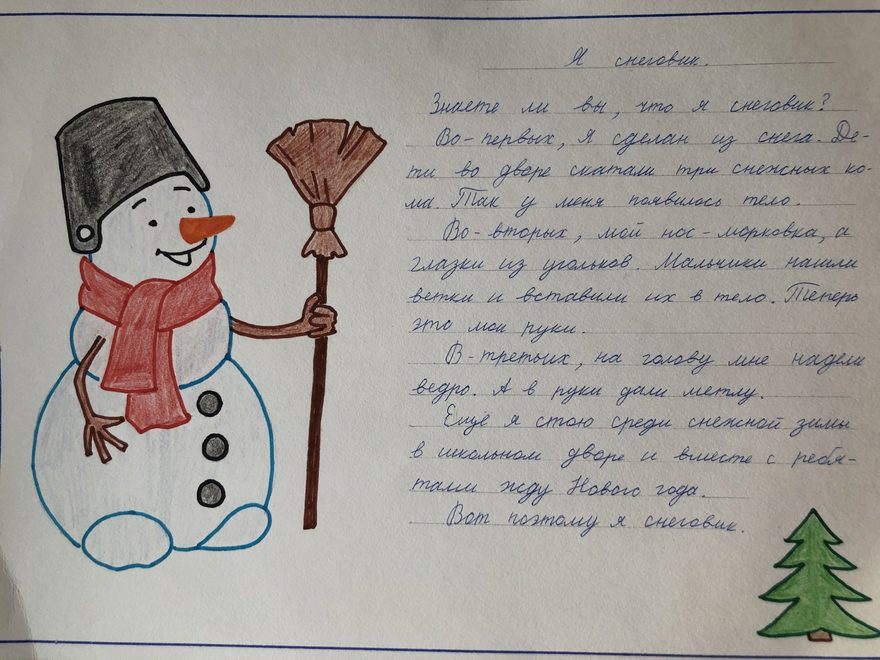 Я снеговик.
Знаете ли вы, что я снеговик?
Во-первых, я сделан из снега. Де-
ти во дворе скатали три снежных ко-
ма. Так у меня появилось тело.
Во-вторых, мой нос-морковка, а
глазки из угольков. Мальчики нашли
ветки и вставили их в тело. Теперь
это мои руки.
В-третьих, на голову мне надели
ведро. А в руки дали метлу.
Ещё я стою среди снежной зимы
в школьном дворе и вместе с ребя-
тами жду Нового года.
Вот поэтому я снеговик.